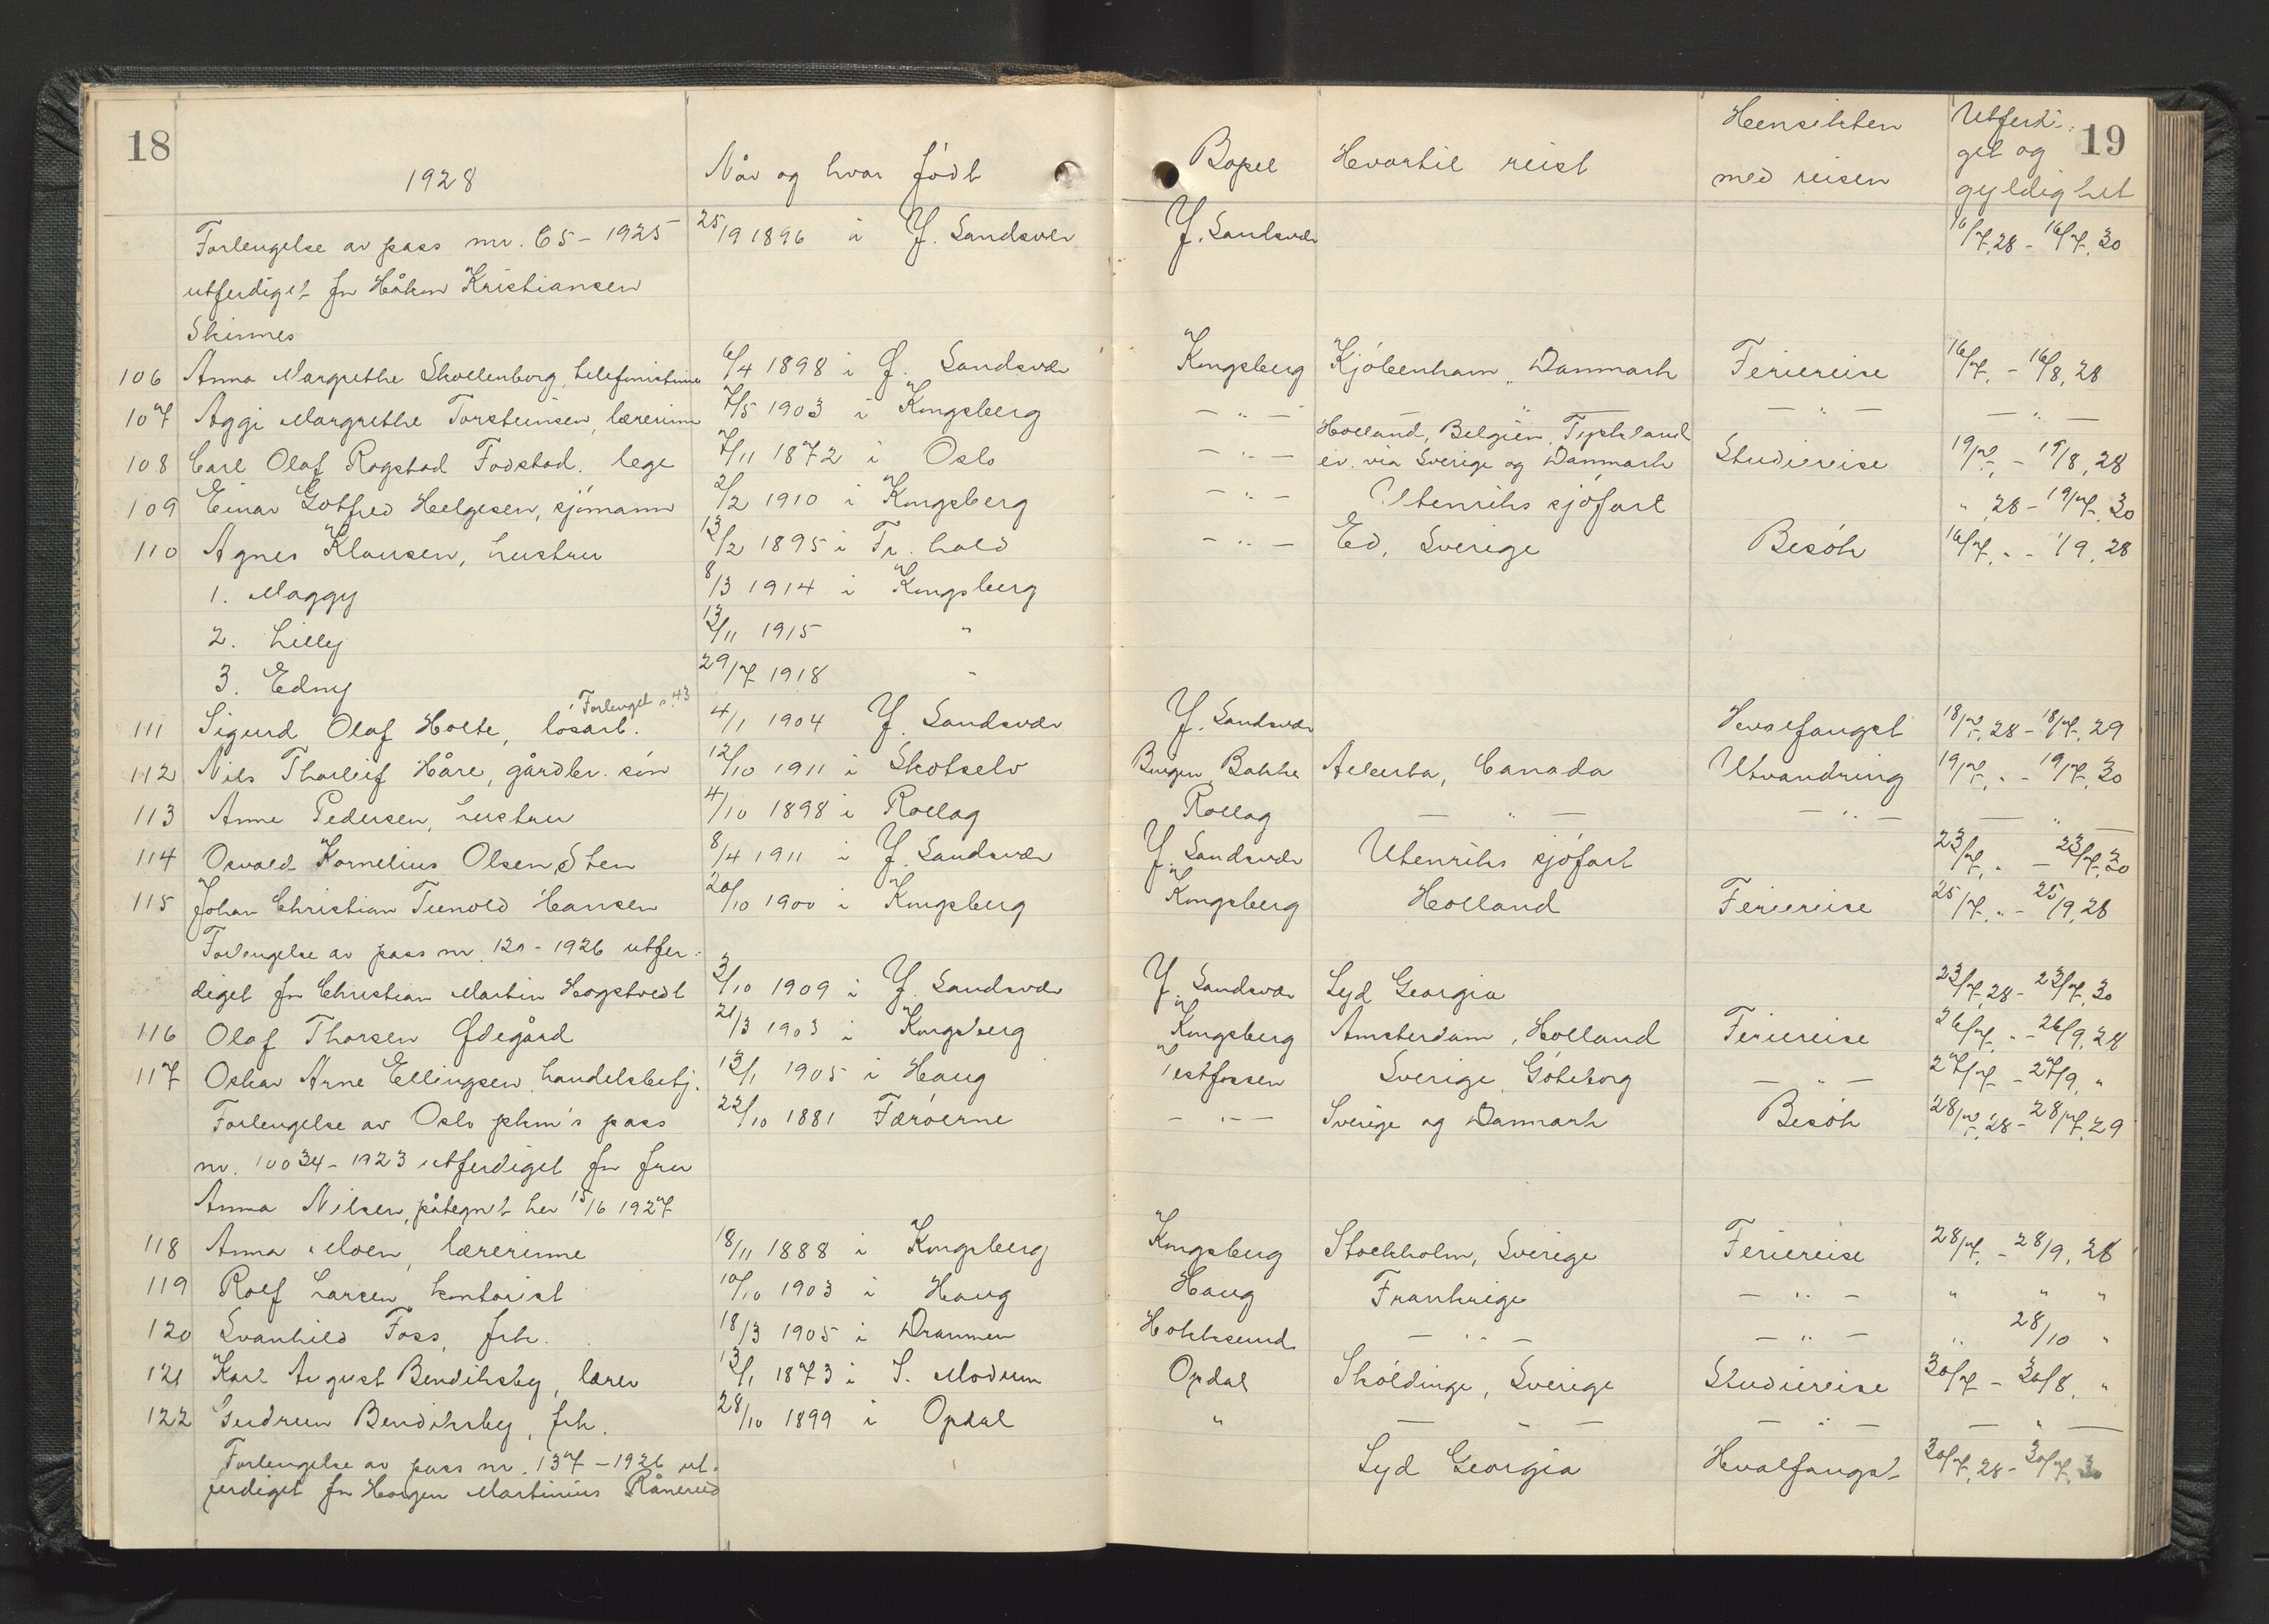 18
1928
Når og hvor født
Bopel
Hvortil reist
Hensikten
med reisen
Utferdi-
get og
gyldighet
19
Forlengelse av pass nr. 65 - 1925 25/9 1896 i Y. Sandsver Y. Sandsvær 16/7.28 - 16/7.30
utferdiget for Håkon Kristiansen
Skinnes
106 Anna Margrethe Skollenborg, telefonistinne 6/4 1898 i Y. Sandsvær Kongsberg Kjøbenhavn, Danmark Feriereise 16/7. - 16/8, 28
107 Aggi Margrethe Torsteinsen, lærerinne 7/5 1903 i Kongsberg - " - - " - - " - - " -
108 Carl Olaf Rogstad Fodstad, lege 7/11 1872 i Oslo - " - Holland, Belgien, Tyskland
ev. via Sverige og Danmark Studiereise 19/7. - 19/8, 28
109 Einar Gotfred Helgesen, sjømann 2/2 1910 i Kongsberg - " - Utenriks sjøfart " 28 - 19/7. 30
110 Agnes Klausen, hustru 13/2 1895 i Fr. hald - " - Ed, Sverige Besøk 16/7. " - 1/9. 28
1. Maggy 8/3 1914 i Kongsberg
2. Lilly 13/11 1915 "
3. Edny 29/7 1918 "
Forlenget s. 43
111 Sigurd Olaf Holte, løsarb. 4/1 1904 Y. Sandsvær Y. Sandsvær Hvalfangst 18/7. 28 - 18/7. 29
112 Nils Thorleif Håre, gårdbr. søn 12/10 1911 i Skotselv Burgen, Bakke Alberta, Canada Utvandring 19/7. " - 19/7. 30
113 Anne Pedersen, hustru 4/10 1898 i Rollag Rollag - " - - " - - " -
114 Osvald Kornelius Olsen Sten 8/4 1911 i Y. Sandsvær Y. Sandsvær Utenriks sjøfart 23/7. " - 23/7. 30
115 Johan Christian Tunold Hansen 20/10 1900 i Kongsberg Kongsberg Holland Feriereise 25/7. " - 25/9. 28
Forlengelse av pass nr. 120 - 1926 utfer-
diget for Christian Martin Hogstvedt 3/10 1909 i Y. Sandsvær Y. Sandsvær Syd Georgia 23/7. 28 - 23/7. 30
116 Olaf Thorsen Ødegård 21/3 1903 i Kongsberg Kongsberg Amsterdam, Holland Feriereise 26/7. " - 26/9. 28
117 Oskar Arne Ellingsen, handelsbetj. 12/1 1905 i Haug Vestfossen Sverige, Gøteborg - " - 27/7 - 27/9. "
Forlengelse av Oslo pkm's pass 22/10 1881 Færøerne - " - Sverige og Danmark Besøk 28/7. 28 - 28/7. 29
nr. 10034 - 1923 utferdiget for fru
Anna Nilsen, påtegnet her 15/6 1927
118 Anna Moen, lærerinne 18/11 1888 i Kongsberg Kongsberg Stockholm, Sverige Feriereise 28/7. - 28/9. 28
119 Rolf Larsen, kontorist 10/10 1903 i Haug Haug Frankrige - " - " " "
120 Svanhild Foss, frk. 18/3 1905 i Drammen Hokksund - " - - " - " 28/10 "
121 Karl August Bendiksby, lærer 13/1 1873 i S. Modum Opdal Skøldinge, Sverige Studiereise 30/7 - 30/8. "
122 Gudrun Bendiksby, frk. 28/10 1899 i Opdal " - " - - " - - " -
Forlengelse av pass nr. 137 - 1926 ut- Syd Georgia Hvalfangst 30/7. 28 - 30/7. 30
ferdiget for Horgen Martinius Rånerud